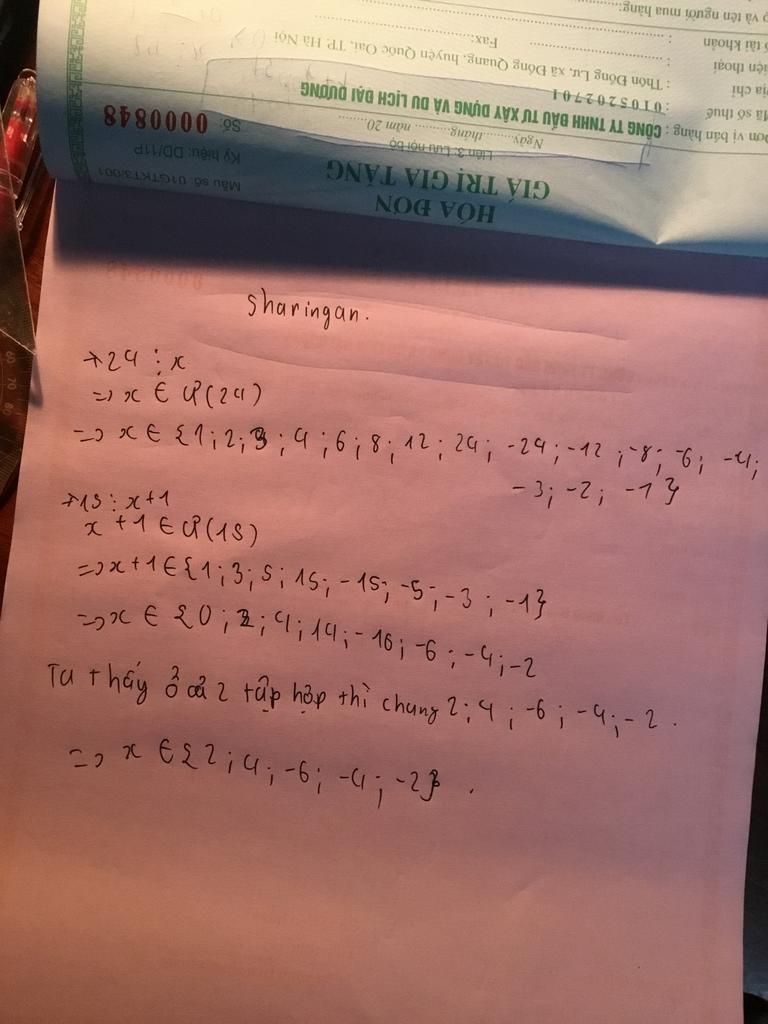 Họ và tên người mua hàng:
Số tài khoản :
Điện thoại : Fax:
Địa chỉ : Thôn Đông Lư, xã Đông Quang, huyện Quốc Oai, TP. Hà Nội
Mã số thuế : 0105202701
Đơn vị bán hàng : CÔNG TY TNHH ĐẦU TƯ XÂY DỰNG VÀ DU LỊCH ĐẠI DƯƠNG
Ngày......... tháng.......... năm 20.......
Số: 0000848
Liên 3: Lưu nội bộ
Ký hiệu: DD/11P
GIÁ TRỊ GIA TĂNG
Mẫu số: 01GTKT3/001
HÓA ĐƠN
Sharingan.
+24 ⋮ x
=> x ∈ Ư(24)
=> x ∈ {1; 2; 3; 4; 6; 8; 12; 24; -24; -12; -8; -6; -4;
-3; -2; -1}
+15 ⋮ x+1
x+1 ∈ Ư(15)
=> x+1 ∈ {1; 3; 5; 15; -15; -5; -3; -1}
=> x ∈ {0; 2; 4; 14; -16; -6; -4; -2
Ta thấy ở cả 2 tập hợp thì chung 2; 4; -6; -4; -2.
=> x ∈ {2; 4; -6; -4; -2}.